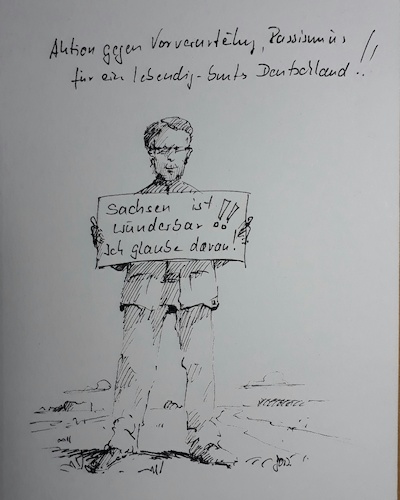 Aktion gegen Vorverurteilug, Rassismus
für ein lebendig-buntes Deutschland..!!
Sachsen ist
wunderbar!!
Ich glaube daran!